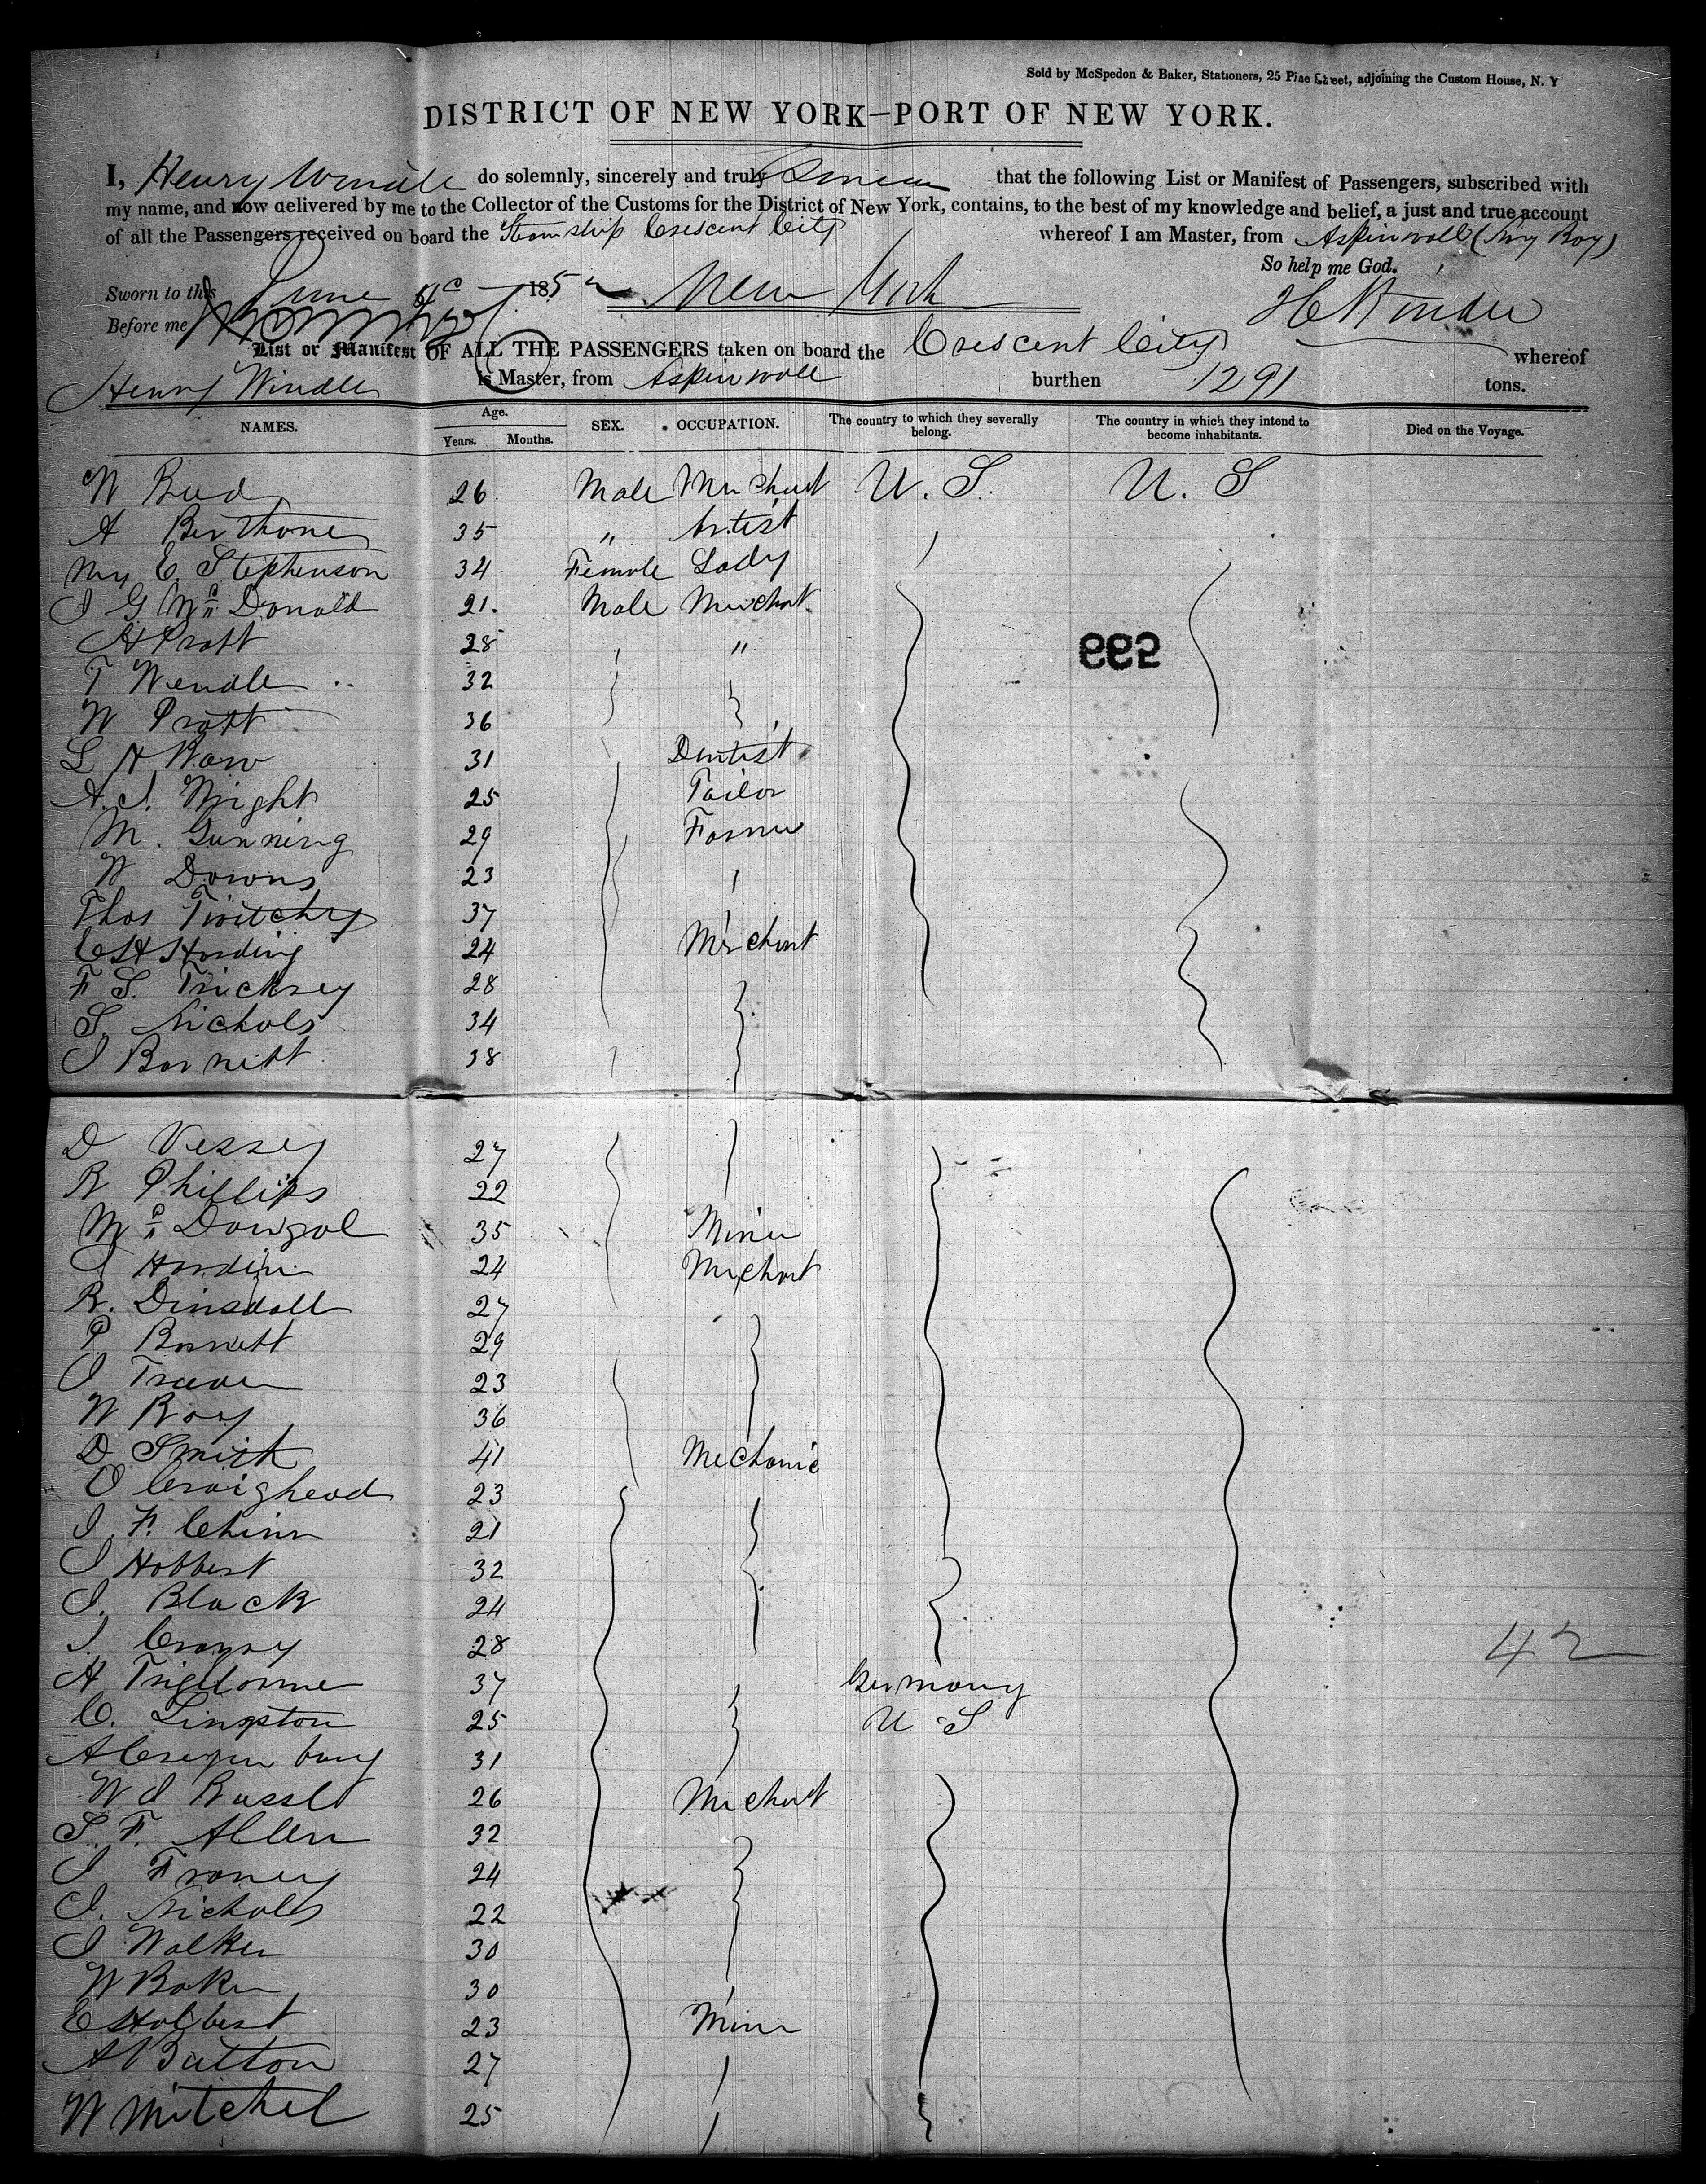 Sold by McSpedon & Baker, Stationers, 25 Pine Street, adjoining the Custom House, N. Y
DISTRICT OF NEW YORK—PORT OF NEW YORK.
I, Henry Windle do solemnly, sincerely and truly that the following List or Manifest of Passengers, subscribed with
my name, and now delivered by me to the Collector of the Customs for the District of New York, contains, to the best of my knowledge and belief, a just and true account
of all the Passengers received on board the Steamship Crescent City whereof I am Master, from Aspinwall (Navy Bay)
So help me God.
Sworn to this June 185 New York
Before me H Windle
List or Manifest OF ALL THE PASSENGERS taken on board the Crescent City whereof
Henry Windle is Master, from Aspinwall burthen 1291 tons.
NAMES. Age. Years. Months. SEX. OCCUPATION. The country to which they severally belong. The country in which they intend to become inhabitants. Died on the Voyage.
W 26 Male Merchant U. S. U. S
A Berthone 35 " Artist
E. Stephenson 34 Female Lady
J G Mc Donald 21. Male Merchant
H Pratt 28 "
T Wendle 32
W Pratt 36
L H 31 Dentist
A. J. Wright 25 Tailor
M. Gunning 29 Farmer
W Downs 23
Thos Twitchey 37
E H Harding 24 Merchant
F S. Tricksey 28
S. Nichols 34
J Barnett 38
599
D Vessey 27
R Phillips 22
Mc 35 Miner
J 24 Merchant
R. Dinsdall 27
P Barnett 29
J 23
W Ray 36
D Smith 41 Mechanic
O Craighead 23
J. F. Chinn 21
J Hobbert 32
J. Black 24
J 28
H 37 Germany
C. 25 U S
A 31
W J Russel 26 Merchant
S. F. Allen 32
J Franey 24
J. Nichols 22
J Walker 30
W Baker 30
E Holbert 23 Miner
A Button 27
W Mitchel 25
42